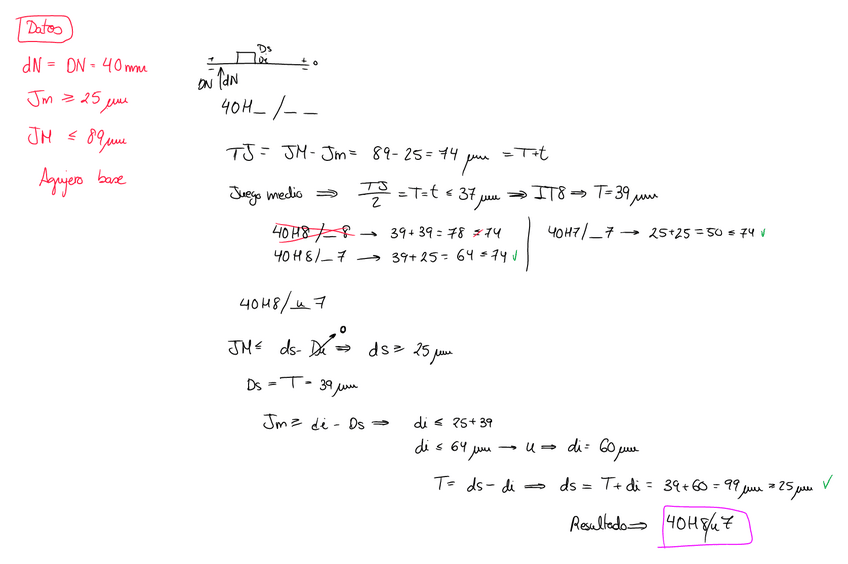 Datos
dN = DN = 40 mm
Jm ≥ 25 μm
JM ≤ 89 μm
Agujero base
+ Ds Di + 0
- -
DN dN
40H_ / _ _
TJ = JM - Jm = 89 - 25 = 74 μm = T+t
Juego medio ⇒ TJ/2 = T = t ≤ 37 μm ⇒ IT8 ⇒ T = 39 μm
40H8/_8 → 39+39 = 78 ≠ 74
40H8/_7 → 39+25 = 64 ≤ 74 ✓
40H7/_7 → 25+25 = 50 ≤ 74 ✓
40H8/u7
JM ≤ ds - Di 0 ⇒ ds ≥ 25 μm
Ds = T = 39 μm
Jm ≥ di - Ds ⇒ di ≤ 25+39
di ≤ 64 μm → u ⇒ di = 60 μm
T = ds - di ⇒ ds = T + di = 39+60 = 99 μm ≥ 25 μm ✓
Resultado ⇒ 40H8/u7